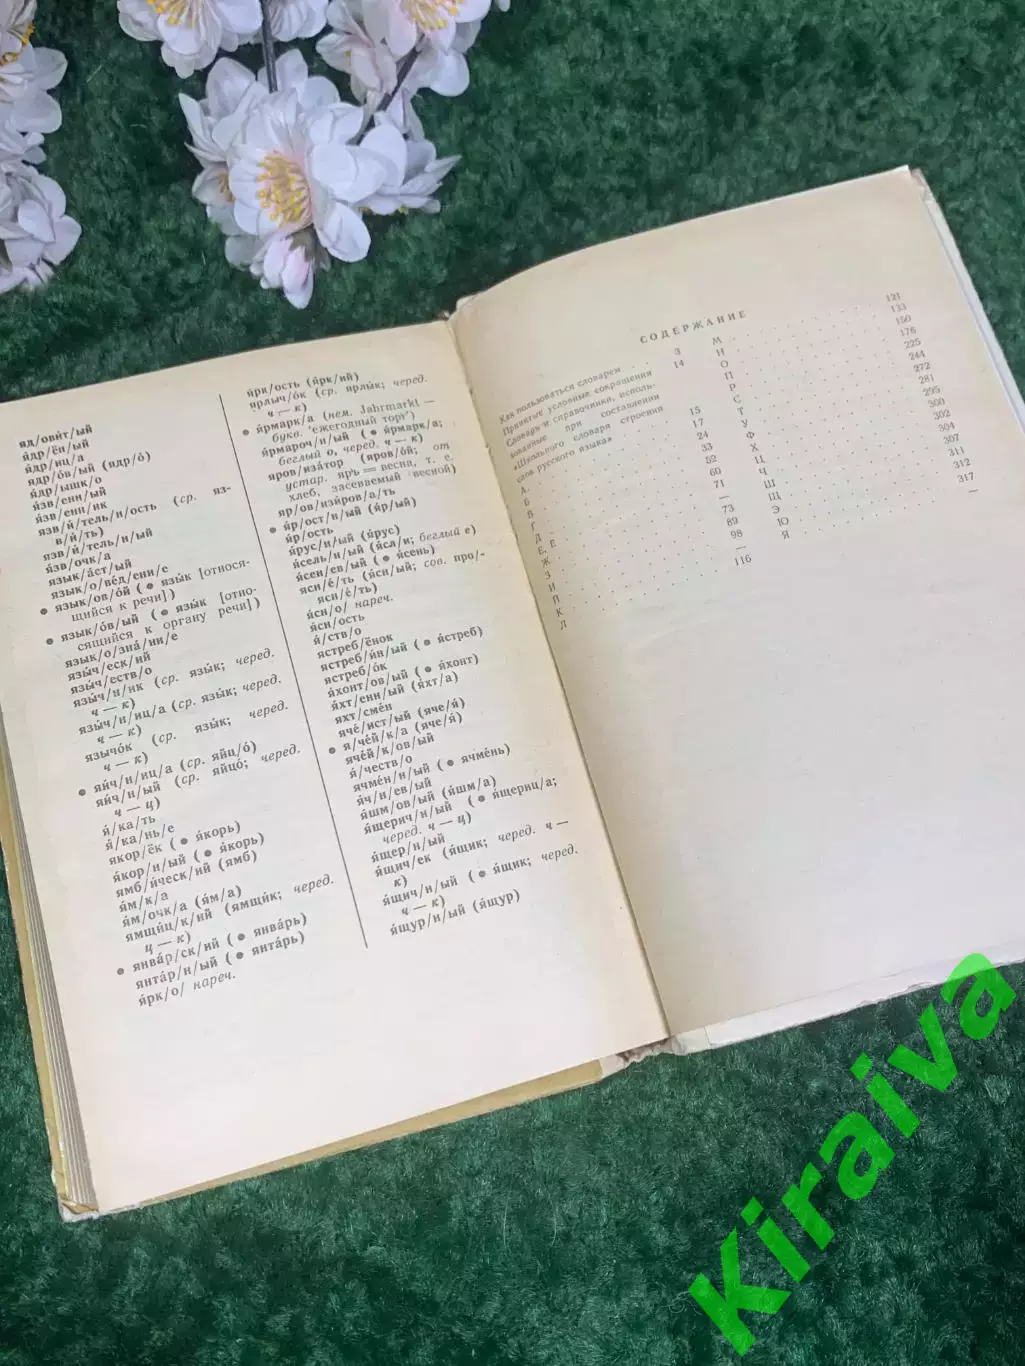 яд/ови́т/ый
я́др/ён/ый
я́др/иц/а
я́др/о́в/ый (ядр/о́)
я́др/ышк/о
я́зв/енн/ый
я́зв/енн/ик
язв/и́/тель/н/ость (ср. яз-
в/и́/ть)
язв/и́/тель/н/ый
я́зв/очк/а
язык/а́ст/ый
язык/о/ве́д/ени/е
● язык/ов/о́й (● язы́к [относя-
щийся к речи])
● язык/о́в/ый (● язы́к [отно-
сящийся к органу речи])
язык/о/зна́/ни/е
язы́ч/еск/ий
язы́ч/еств/о
язы́ч/н/ик (ср. язы́к; черед.
ч — к)
язы́ч/н/иц/а (ср. язы́к; черед.
ч — к)
язычо́к (ср. язы́к; черед.
ч — к)
● яи́ч/н/иц/а (ср. яйц/о́)
яи́ч/н/ый (ср. яйцо́; черед.
ч — ц)
я́/ка/ть
я́/ка/нь/е
якор/ёк (● я́корь)
я́кор/н/ый (● я́корь)
ямб/и́ческ/ий (ямб)
я́м/к/а
я́м/очк/а (ям/а)
ямщи́ц/к/ий (ямщи́к; черед.
ц — к)
● янва́р/ск/ий (● янва́рь)
янта́р/н/ый (● янта́рь)
я́рк/о/ нареч.
я́рк/ость (я́рк/ий)
ярлыч/о́к (ср. ярлы́к; черед.
ч — к)
● я́рмарк/а (нем. Jahrmarkt —
букв. 'ежегодный торг')
я́рмароч/н/ый (● я́рмарк/а;
беглый о, черед. ч — к)
яров/иза́тор (яров/о́й; от
устар. яръ = весна, т. е.
хлеб, засеваемый весной)
яр/ов/изи́ров/а/ть
● я́р/ост/н/ый (я́р/ый)
я́р/ость
я́рус/н/ый (я́рус)
я́сель/н/ый (я́сл/и; беглый е)
ясен/ев/ый (● я́сень)
ясн/е́/ть (я́сн/ый; сов. про/-
ясн/е́/ть)
я́сн/о/ нареч.
я́сн/ость
я́/ств/о
ястреб/ёнок
ястреб/и́н/ый (● я́стреб)
ястреб/о́к
я́хонт/ов/ый (● я́хонт)
я́хт/енн/ый (я́хт/а)
яхт/сме́н
яче́/ист/ый (яче/я́)
● я/че́й/к/а (яче/я́)
яче́й/к/ов/ый
я́/честв/о
ячме́н/н/ый (● ячме́нь)
я́ч/н/ев/ый
я́шм/ов/ый (я́шм/а)
я́щерич/н/ый (● я́щериц/а;
черед. ч — ц)
я́щер/н/ый
я́щич/ек (я́щик; черед. ч —
к)
я́щич/н/ый (● я́щик; черед.
ч — к)
я́щур/н/ый (я́щур)
СОДЕРЖАНИЕ
Как пользоваться словарем . . 3
Принятые условные сокращения 14
Словари и справочники, исполь-
зованные при составлении
«Школьного словаря строения
слов русского языка» 15
А. 17
Б 24
В 33
Г 52
Д 60
Е, Ё 71
Ж —
З 73
И 89
Й 98
К —
Л 116
М 121
Н 133
О 150
П 176
Р 225
С 244
Т 272
У 281
Ф 295
Х 300
Ц 302
Ч 304
Ш 307
Щ 311
Э 312
Ю 317
Я —
Kiraiva